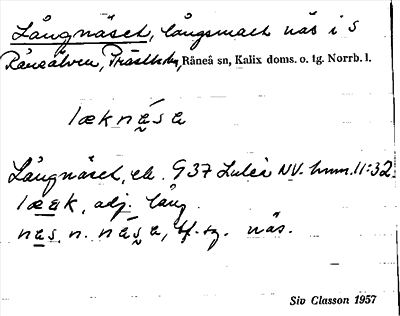 Långnäset, långsmalt näs i S
Råneälven, Prästholm, Råneå sn, Kalix doms. o. tg. Norrb. l.
læknäsa
Långnäset, ek. 937 Luleå NV. hnm. 11:32.
læak, adj. lång.
nas, n. näsa, bf. sg. näs.
Siv Classon 1957